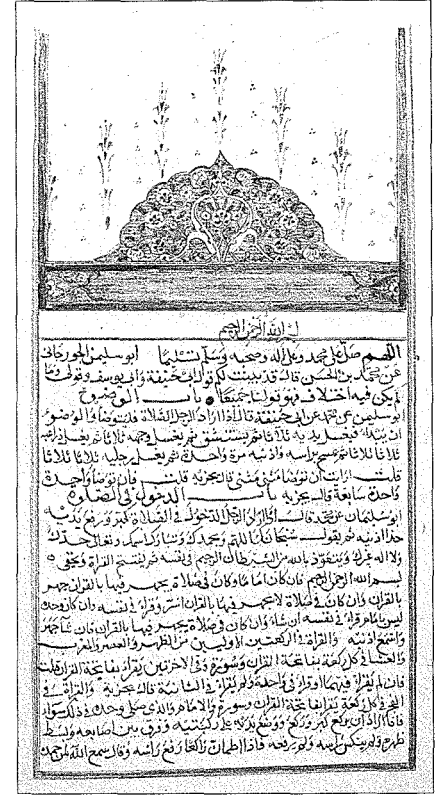 بسم الله الرحمن الرحيم
اللهم صل على محمد وعلى اله وصحبه وسلم تسليما ابو سليمن الجورجانى
عن محمد بن الحسن قال قد بينت لكم قول ابى حنيفة وابى يوسف وقولى وما
لم يكن فيه اختلاف فهو قولنا جميعا باب الوضوء
ابو سليمن عن محمد عن ابى حنيفة قال اذا اراد الرجل الصلاة فليتوضا والوضوء
ان يبتدئ فيغسل يديه ثلاثا ثم يستنشق ثم يغسل وجهه ثلاثا ثم يغسل ذراعيه
ثلاثا ثلاثا ثم يمسح براسه واذنيه مرة واحدة ثم يغسل رجليه ثلاثا ثلاثا
قلت ارايت ان توضا مثنى مثنى قال يجزيه قلت فان توضا واحدة
واحدة سابغة قال يجزيه باب الدخول في الصلوة
ابو سليمان عن محمد قال اذا اراد الرجل الدخول في الصلاة كبر ورفع يديه
حذا اذنيه ثم يقول سبحانك اللهم وبحمدك وتبارك اسمك وتعالى جدك
ولا اله غيرك ويتعوذ بالله من الشيطان الرجيم في نفسه ثم يفتتح القراة ويخفى
بسم الله الرحمن الرحيم فان كان اماما وكان في صلاة يجهر فيها بالقران جهر
بالقران وان كان في صلاة لا يجهر فيها بالقران اسر وقرا في نفسه وان كان وحده
ليس بامام قرا في نفسه ان شاء وان كان في صلاة يجهر فيها بالقران فان شا جهر
واسمع اذنيه والقراة في الركعتين الاوليين من الظهر والعصر والمغرب
والعشا في كل ركعة بفاتحة القران وسورة وفي الاخرتين يقرا بفاتحة القران قلت
فان لم يقرا فيهما او قرا في واحدة ولم يقرا في الثانية قال يجزيه والقراة في
الفجر في كل ركعة يقرا بفاتحة القران وسورة والامام والذى صلى وحده في ذلك سواء
فاذا اراد ان يركع كبر وركع ووضع يديه على ركبتيه وفرق بين اصابعه وبسط
ظهره ولم ينكس راسه ولم يرفعه فاذا اطمان راكعا رفع راسه وقال سمع الله لمن حمده